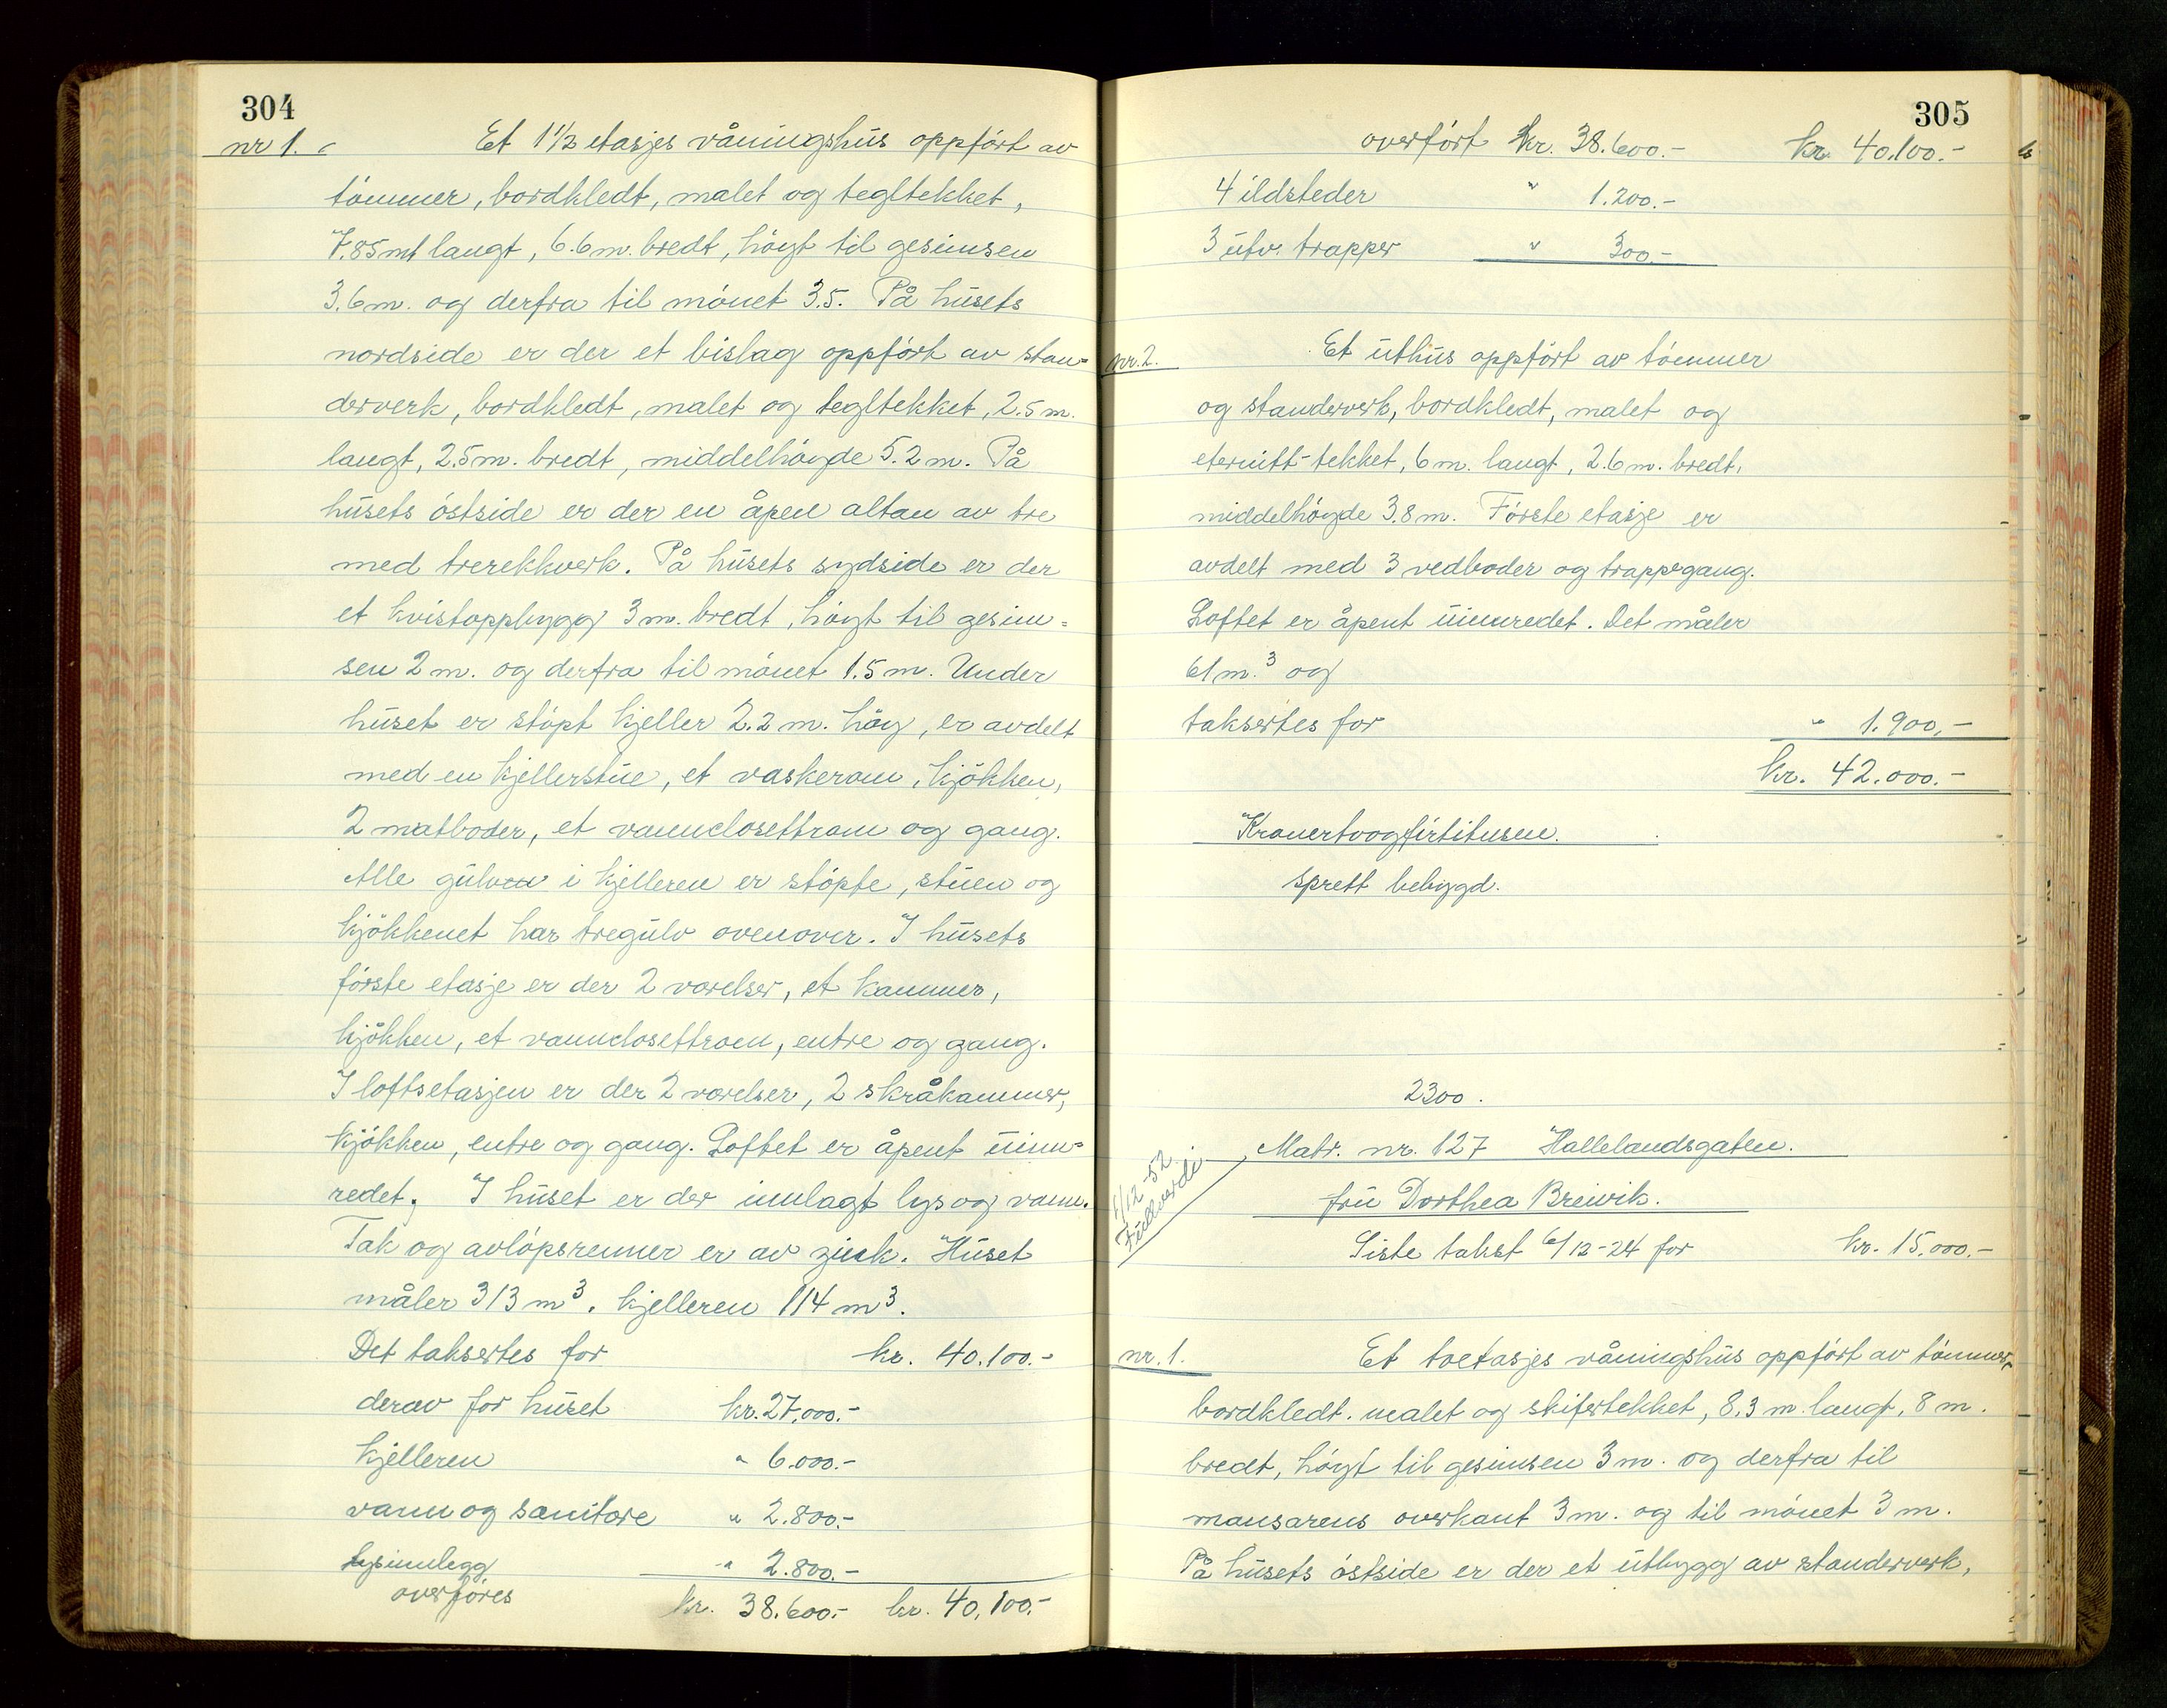 304
nr 1.
Et 1 1/2 etasjes våningshus oppført av
tømmer, bordkledt, malet og tegltekket,
7.85 mt langt, 6.6 m. bredt, høyt til gesimsen
3.6 m. og derfra til mønet 3.5. På husets
nordside er der et bislag oppført av stan=
derverk, bordkledt, malet og tegltekket, 2.5 m.
langt, 2.5 m. bredt, middelhøyde 5.2 m. På
husets østside er der en åpen altan av tre
med trerekkverk. På husets sydside er der
et kvistoppbygg 3 m. bredt, høyt til gesim=
sen 2 m. og derfra til mønet 1.5 m. Under
huset er støpt kjeller 2.2 m. høy, er avdelt
med en kjellerstue, et vaskerom, kjøkken,
2 matboder, et vannclosettrom og gang.
Alle gulv i kjelleren er støpte, stuen og
kjøkkenet har tregulv ovenover. I husets
første etasje er der 2 værelser, et kammer,
kjøkken, et vannclosettroem, entre og gang.
I loftsetasjen er der 2 værelser, 2 skråkammer,
kjøkken, entre og gang. Loftet er åpent uinn=
redet. I huset er der innlagt lys og vann.
Tak og avløpsrenner er av zink. Huset
måler 313 m³. kjelleren 114 m³.
Det taksertes for kr. 40.100.-
derav for huset kr. 27,000.-
kjelleren " 6.000.-
vann og sanitære " 2.800.-
Lysinnlegg " 2.800.-
overføres kr. 38.600.- kr. 40,100.-
305
overført kr. 38.600.- kr. 40.100.-
4 ildsteder " 1.200.-
3 utv. trapper " 300.-
nr. 2.
Et uthus oppført av tømmer
og standerverk, bordkledt, malet og
eternitt-tekket, 6 m. langt, 2.6 m. bredt,
middelhøyde 3.8 m. Første etasje er
avdelt med 3 vedboder og trappegang.
Loftet er åpent uinnredet. Det måler
61 m.³ og
taksertes for " 1.900,-
kr. 42.000.-
Kronertoogfirtitusen.
Sprett bebygd.
2300.
1/12-52
Fullverdi
Matr. nr. 127 Hallelandsgaten.
fru Dorthea Breivik.
Siste takst 6/12-24 for kr. 15.000.-
nr. 1.
Et toetasjes våningshus oppført av tømmer,
bordkledt. malet og skifertekket, 8.3 m. langt, 8 m.
bredt, høyt til gesimsen 3 m. og derfra til
mansarens overkant 3 m. og til mønet 3 m.
På husets østside er der et utbygg av standerverk,